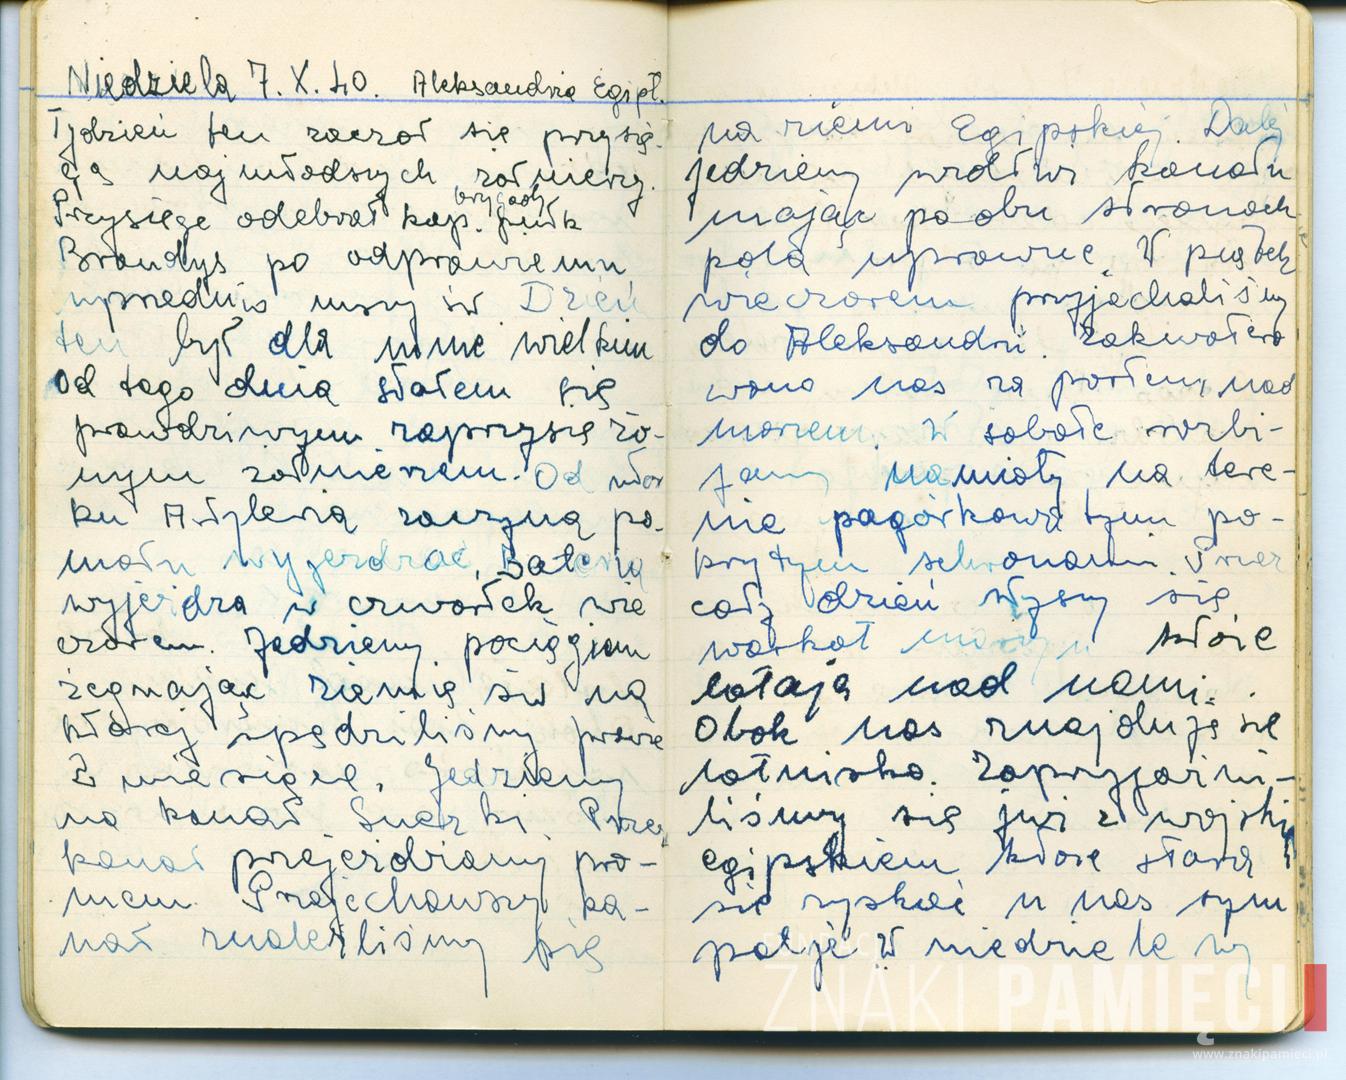 Niedziela 7.X.40. Aleksandria Egipt.
Tydzień ten zaczął się przysię-
gą najmłodszych żołnierzy.
brygady
Przysięgę odebrał kap. pułk
Brandys po odprawieniu
uprzednio mszy św Dzień
ten był dla mnie wielkim
Od tego dnia stałem się
prawdziwym zaprzysiężo-
nym żołnierzem. Od wtor
ku Artyleria zaczyna po-
mału wyjeżdżać, Bateria
wyjeżdża w czwartek wie
czorem. Jedziemy pociągiem
żegnając ziemię św na
której spędziliśmy prawie
2 miesiące, Jedziemy
na kanał Sueski. Przez
kanał przejeżdżamy pro-
mem. Przejechawszy ka-
nał znaleźliśmy się
na ziemi Egipskiej. Dalej
jedziemy wzdłuż kanału
mając po obu stronach
pola uprawne. W piątek
wieczorem przyjechaliśmy
do Aleksandrii. Zakwatero
wano nas za portem, nad
morzem. W sobotę rozbi-
jamy namioty na tere-
nie pagórkowatym po-
krytym schronami. Przez
cały dzień słyszy się
warkot maszyn które
latają nad nami.
Obok nas znajduję się
lotnisko. Zaprzyjaźni-
liśmy się już z wojskiem
egipskiem które stara
się zyskać u nas sym
patję W niedzielę wy
ZNAKI PAMIĘCI
www.znakipamieci.pl